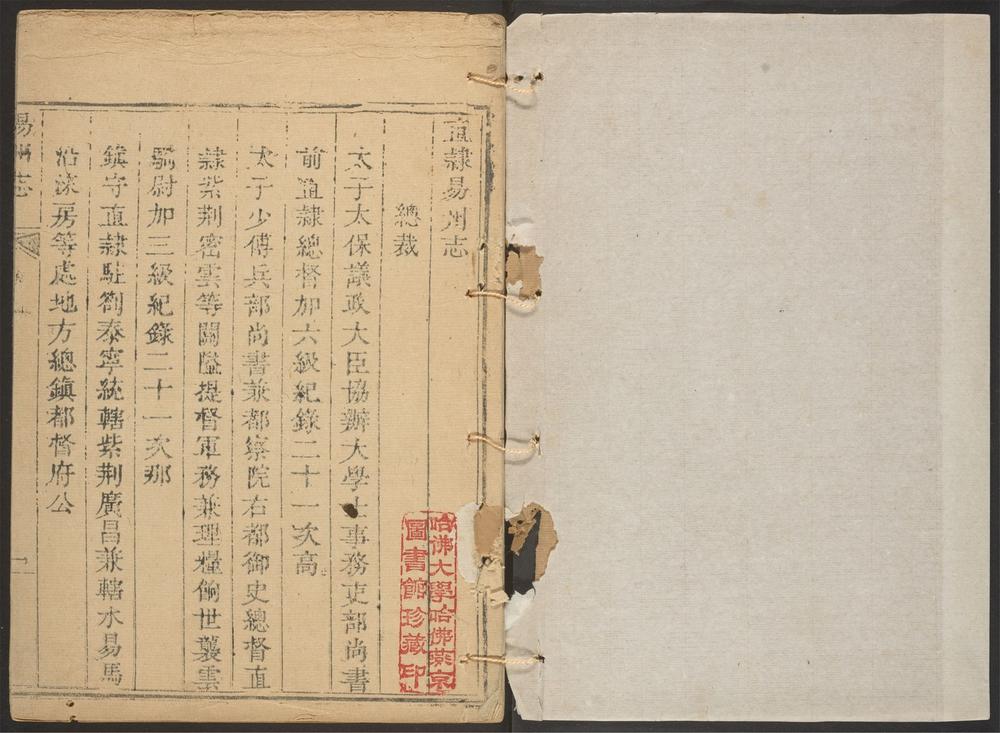 直隸易州志
總裁
太子太保議政大臣協辦大學士事務吏部尚書
前直隸總督加六級紀錄二十一次高
太子少傅兵部尚書兼都察院右都御史總督直
隸紫荆密雲等關隘提督軍務兼理糧餉世襲雲
騎尉加三級紀錄二十一次那
鎮守直隸駐劄泰寧統轄紫荆廣昌兼轄水易馬
沿淶房等處地方總鎮都督府公
易州志
哈佛大學哈佛燕京
圖書館珍藏印